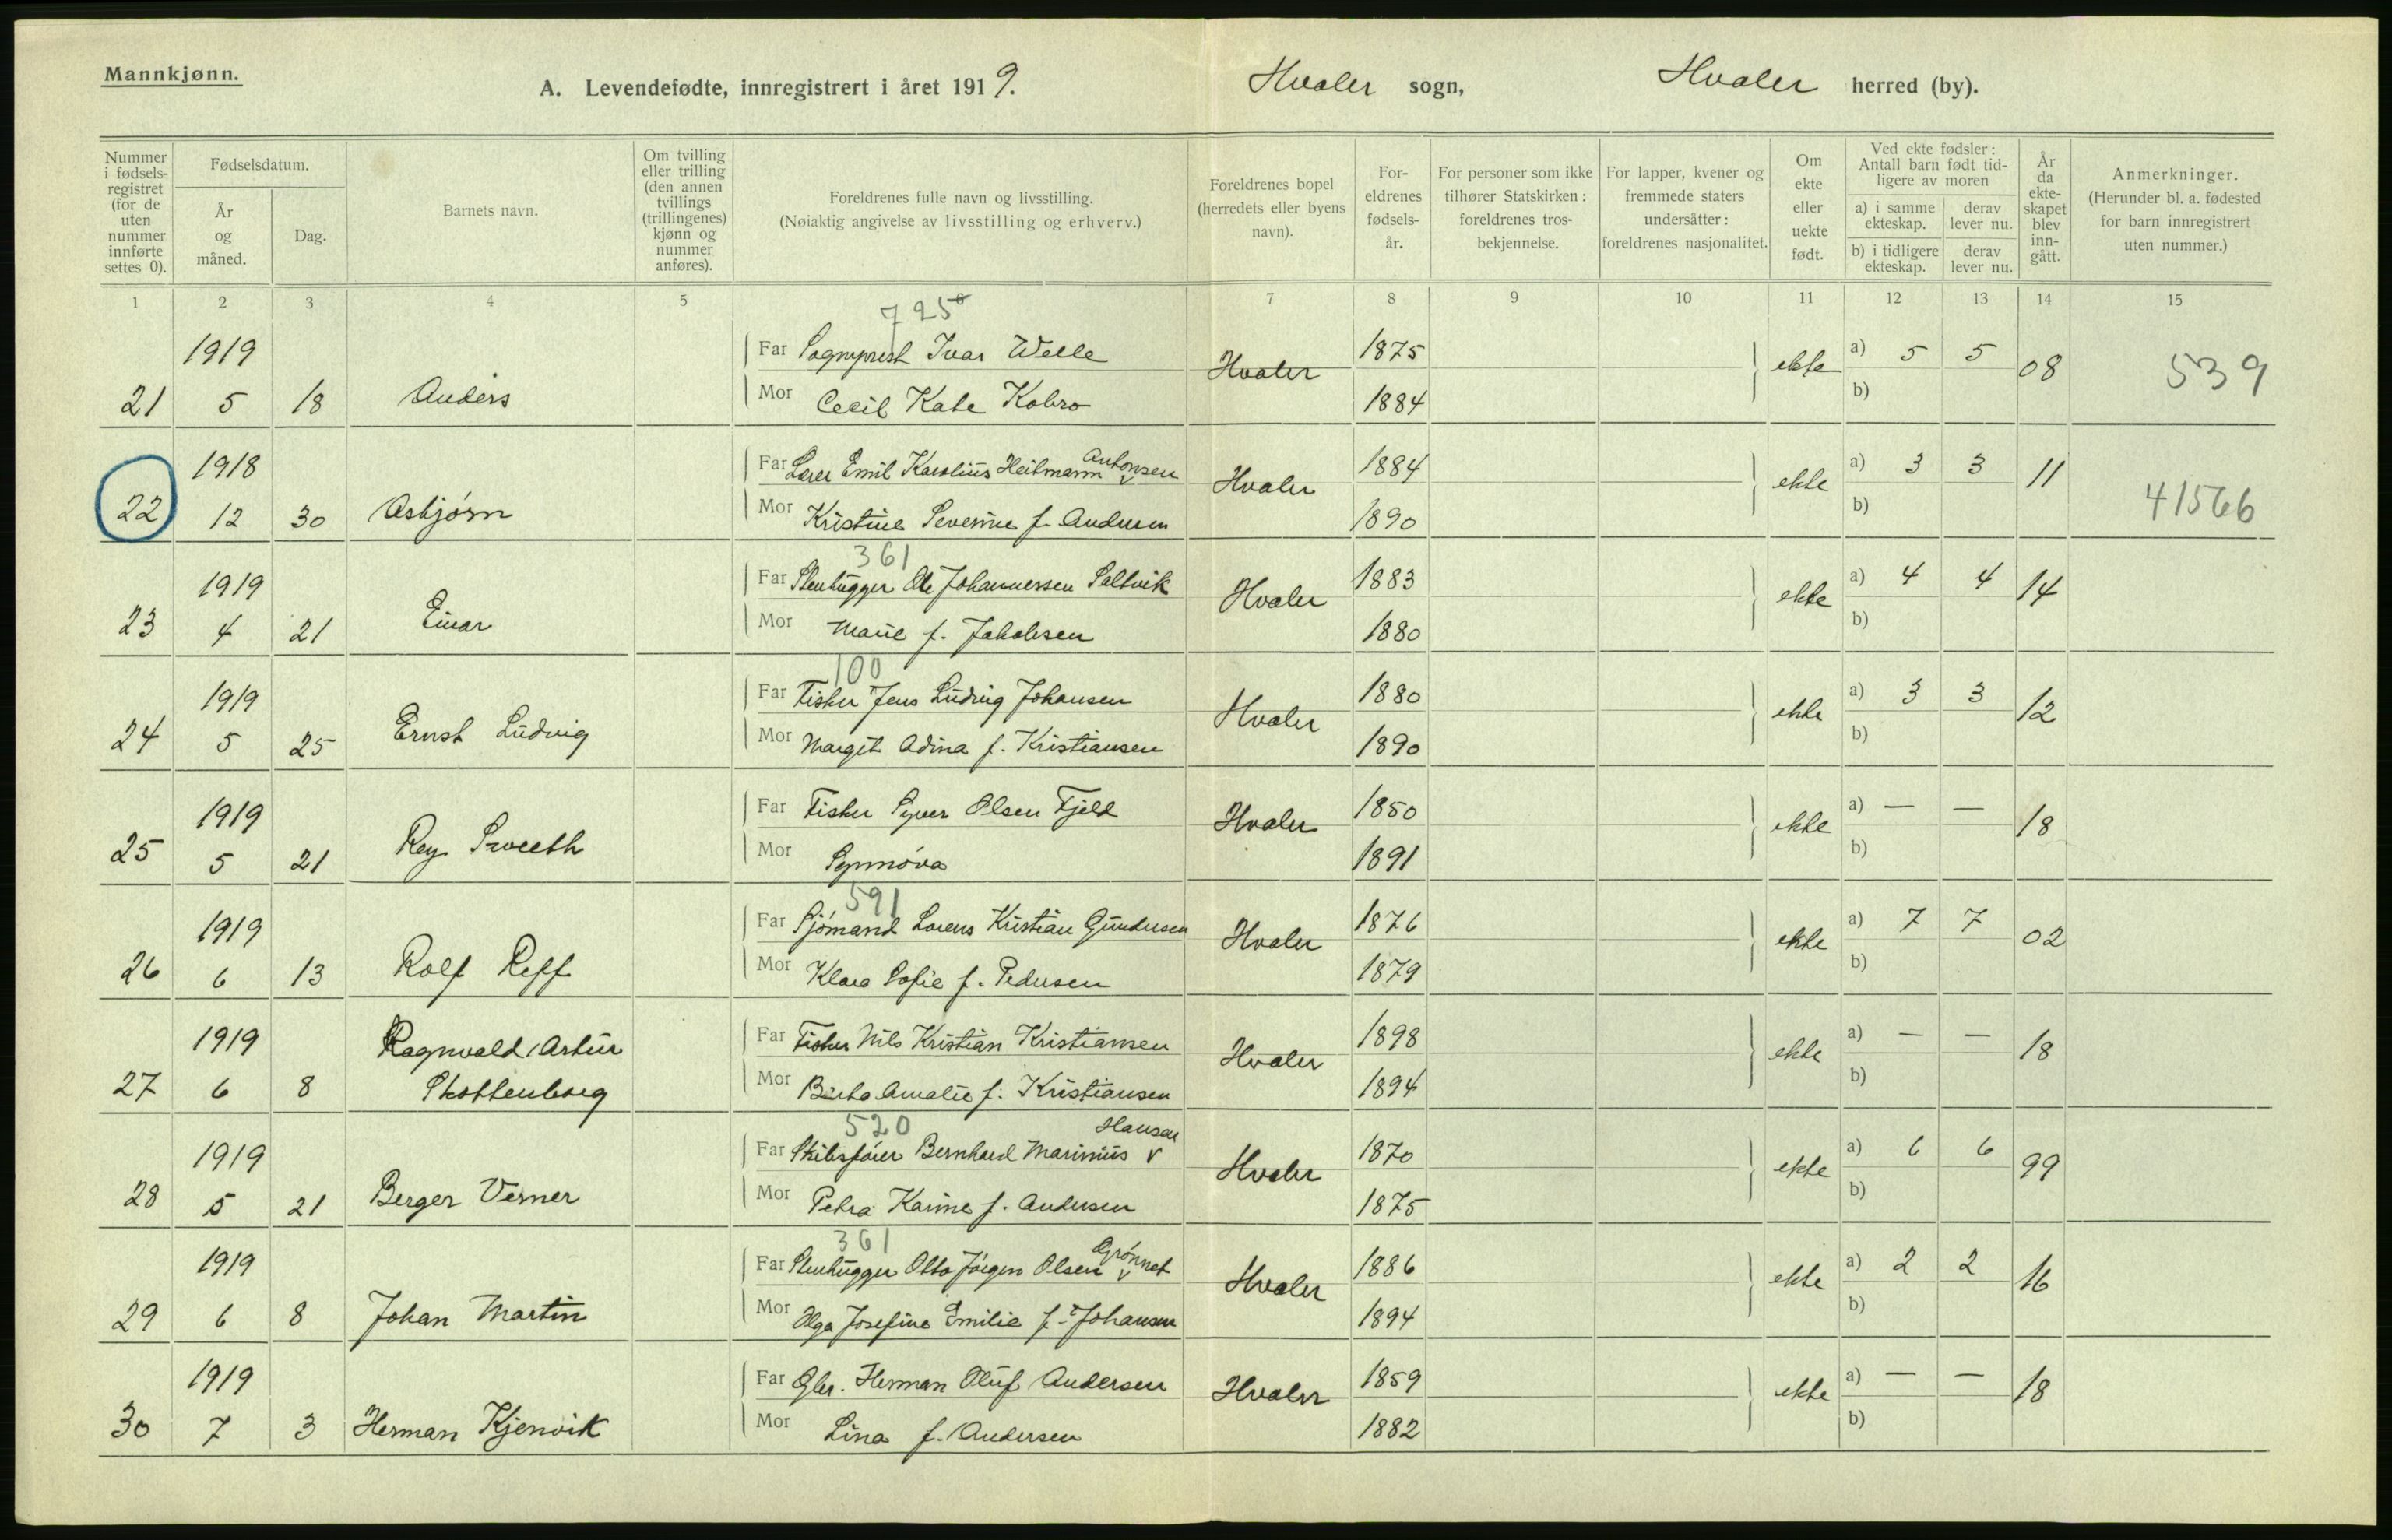 Mannkjønn.
A. Levendefødte, innregistrert i året 1919. Hvaler sogn, Hvaler herred (by).
Nummer i fødselsregistret (for de uten nummer innførte settes 0).
Fødselsdatum.
År og måned.
Dag.
Barnets navn.
Om tvilling eller trilling (den annen tvillings (trillingenes) kjønn og nummer anføres).
Foreldrenes fulle navn og livsstilling.
(Nøiaktig angivelse av livsstilling og erhverv.)
Foreldrenes bopel (herredets eller byens navn).
Foreldrenes fødselsår.
For personer som ikke tilhører Statskirken: foreldrenes trosbekjennelse.
For lapper, kvener og fremmede staters undersåtter: foreldrenes nasjonalitet.
Om ekte eller uekte født.
Ved ekte fødsler: Antall barn født tidligere av moren
a) i samme ekteskap. derav lever nu.
b) i tidligere ekteskap. derav lever nu.
År da ekteskapet blev inngått.
Anmerkninger.
(Herunder bl. a. fødested for barn innregistrert uten nummer.)
1 2 3 4 5 7 8 9 10 11 12 13 14 15
725
1919 Far Sogneprest Ivar Welle Hvaler 1875 ekte a) 5 5 08 539
21 5 18 Anders Mor Cecil Kate Kobro 1884 b)
1918 Far Lærer Emil Karolius Heitmann Antonsen Hvaler 1884 ekte a) 3 3 11 41566
22 12 30 Asbjørn Mor Kristine Severine f. Andersen 1890 b)
361
1919 Far Stenhugger Ole Johannessen Saltvik Hvaler 1883 ekte a) 4 4 14
23 4 21 Einar Mor Marie f. Jakobsen 1880 b)
100
1919 Far Fisker Jens Ludvig Johansen Hvaler 1880 ekte a) 3 3 12
24 5 25 Ernst Ludvig Mor Margit Adina f. Kristiansen 1890 b)
1919 Far Fisker Syver Olsen Fjeld Hvaler 1850 ekte a) — — 18
25 5 21 Roy Mor Synnøva 1891 b)
591
1919 Far Sjømand Lorens Kristian Gundersen Hvaler 1876 ekte a) 7 7 02
26 6 13 Rolf Reff Mor Klara Sofie f. Pedersen 1879 b)
1919 Ragnvald Artur Far Fisker Nils Kristian Kristiansen Hvaler 1898 ekte a) — — 18
27 6 8 Skottenborg Mor Berta Amalie f. Kristiansen 1894 b)
520 Hansen
1919 Far Skibsfører Bernhard Marinius v Hvaler 1870 ekte a) 6 6 99
28 5 21 Berger Verner Mor Petra Karine f. Andersen 1875 b)
361
1919 Far Stenhugger Otto Jörgen Olsen Grønnet Hvaler 1886 ekte a) 2 2 16
29 6 8 Johan Martin Mor Olga Josefine Emilie f. Johansen 1894 b)
1919 Far Gbr. Herman Oluf Andersen Hvaler 1859 ekte a) — — 18
30 7 3 Herman Kjenvik Mor Lina f. Andersen 1882 b)